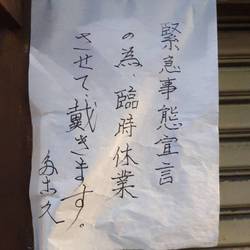 緊急事態宣言
の為、臨時休業
させて、戴きます。